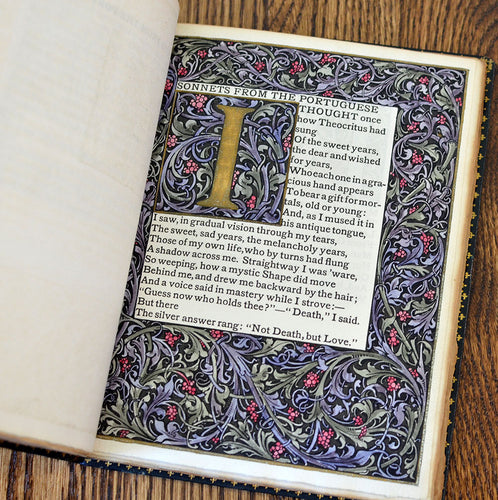 SONNETS FROM THE PORTUGUESE
I THOUGHT once
how Theocritus had
sung
Of the sweet years,
the dear and wished
for years,
Who each one in a gra-
cious hand appears
To bear a gift for mor-
tals, old or young:
And, as I mused it in
his antique tongue,
I saw, in gradual vision through my tears,
The sweet, sad years, the melancholy years,
Those of my own life, who by turns had flung
A shadow across me. Straightway I was 'ware,
So weeping, how a mystic Shape did move
Behind me, and drew me backward by the hair;
And a voice said in mastery while I strove:—
“Guess now who holds thee?”—“Death,” I said.
But there
The silver answer rang: “Not Death, but Love.”